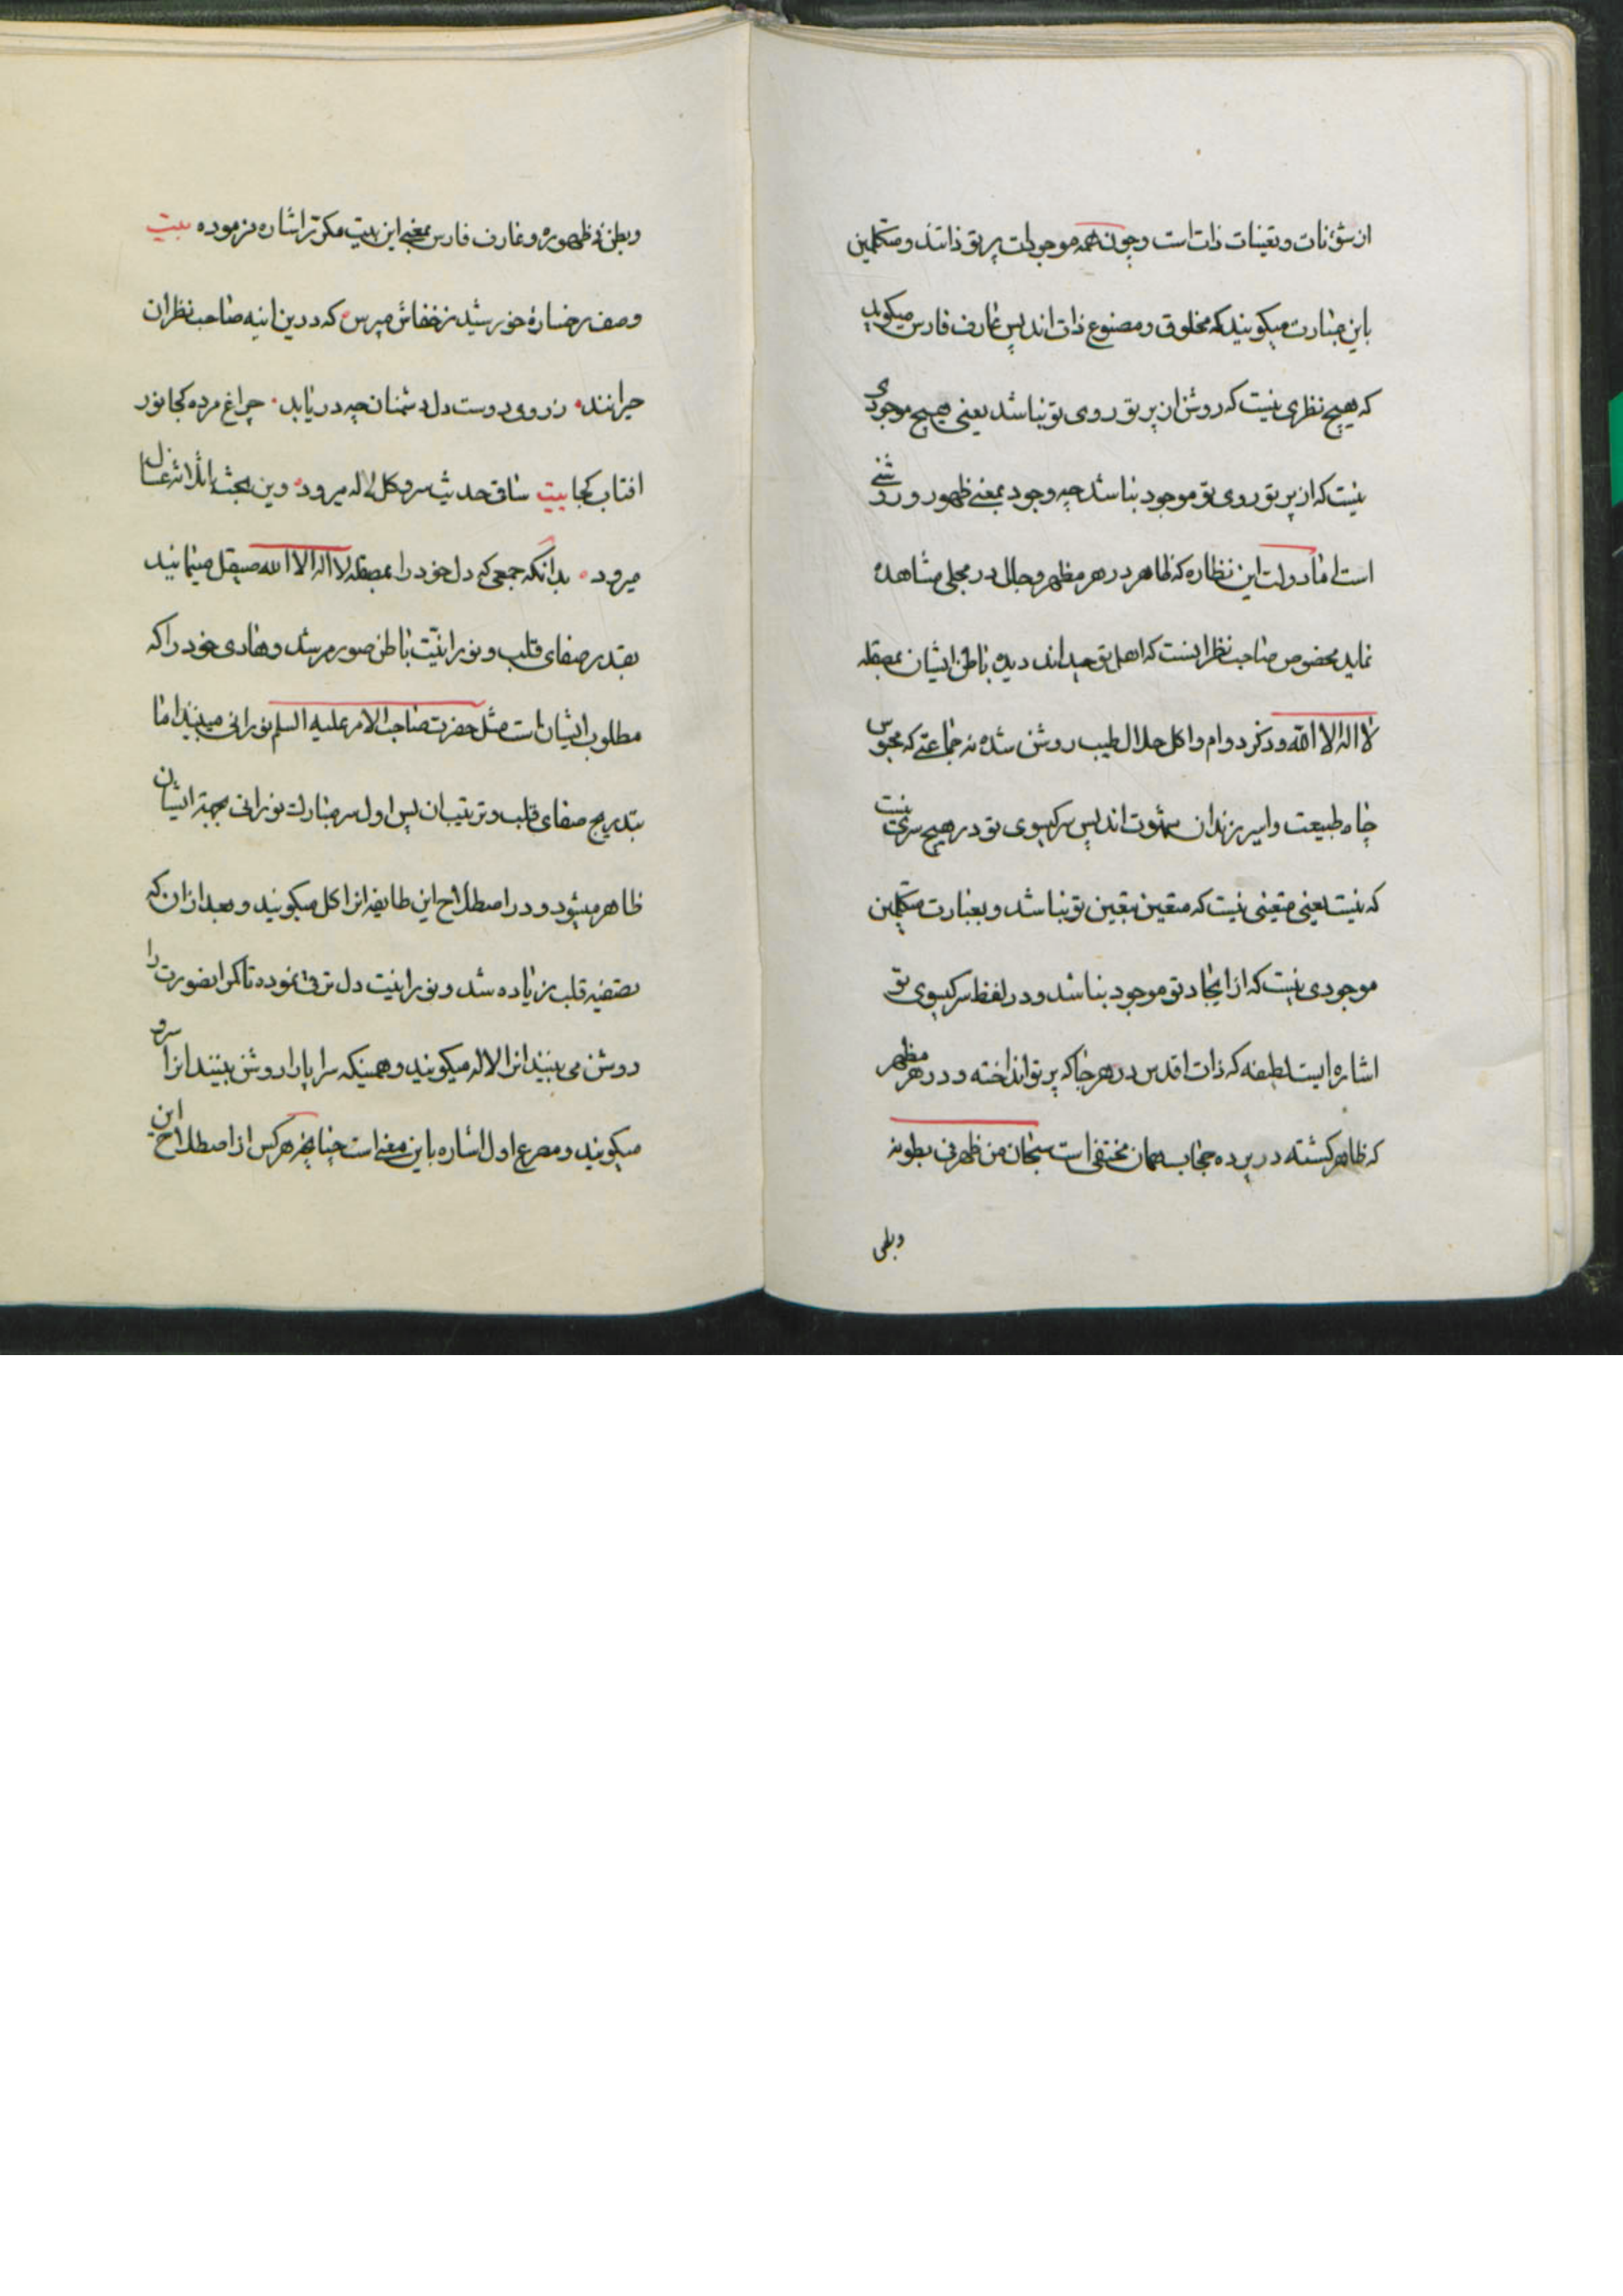 از شؤنات و تعینات ذات است و چون همه موجودات پرتو ذاتند و متکلمین
باین عبارت میکویند که مخلوق و مصنوع ذات اند پس عارف فارس میکوید
که هیچ نظری نیست که روشن از پرتو روی تو نباشد یعنی هیچ موجودی
نیست که از پرتو روی تو موجود نباشد چه وجود بمعنی ظهور و روشنی
است اما دولت این نظاره که ظاهر در هر مظهر و جمال در مجلی مشاهده
نماید مخصوص صاحب نظرانست که اهل توحیداند دیده باطن ایشان بمصقله
لا اله الا الله و ذکر دوام و اکل حلال طیب روشن شده نه جماعتی که محبوس
چاه طبیعت و اسیر زندان شهوت اند پس سر کیسوی تو در هیچ سری نیست
که نیست یعنی متعینی نیست که متعین بتعین تو نباشد و بعبارت متکلمین
موجودی نیست که از ایجاد تو موجود نباشد و در لفظ سر کیسوی تو
اشاره ایست لطیفه که ذات اقدس در هر جا که پرتو انداخته و در هر مظهر
که ظاهر کشته در پرده حجاب همان مختفی است سبحان من ظهر فی بطونه
وبطن
وبطن فی ظهوره و عارف فارس بمعنی این بیت مکرر اشاره فرموده بیت
وصف رخساره خورشید ز خفاش مپرس که درین اینه صاحب نظران
حیرانند ز روی دوست دل دشمنان چه دریابد چراغ مرده کجا نور
افتاب کجا بیت ساقی حدیث سرو و کل و لاله میرود وین بحث با ثلاثه غساله
میرود بدانکه جمعی که دل خود را بمصقله لا اله الا الله صیقل مینمایند
بقدر صفای قلب و نورانیت باطن صور مرشد و هادی خود را که
مطلوب ایشان است مثل حضرت صاحب الامر علیه السلم نورانی میبینند اما
بتدریج صفای قلب و ترتیب ان پس اول سر مبارک نورانی بجهة ایشان
ظاهر میشود و در اصطلاح این طایفه انرا کل میکویند و بعد از ان که
تصفیه قلب زیاده شد و نورانیت دل ترقی نموده تا کمر انصورت را
روشن می بینند انرا لاله میکویند و همینکه سراپا را روشن بینند انرا سرو
میکویند و مصرع اول اشاره باین معنی است چنانچه هر کس از اصطلاح این